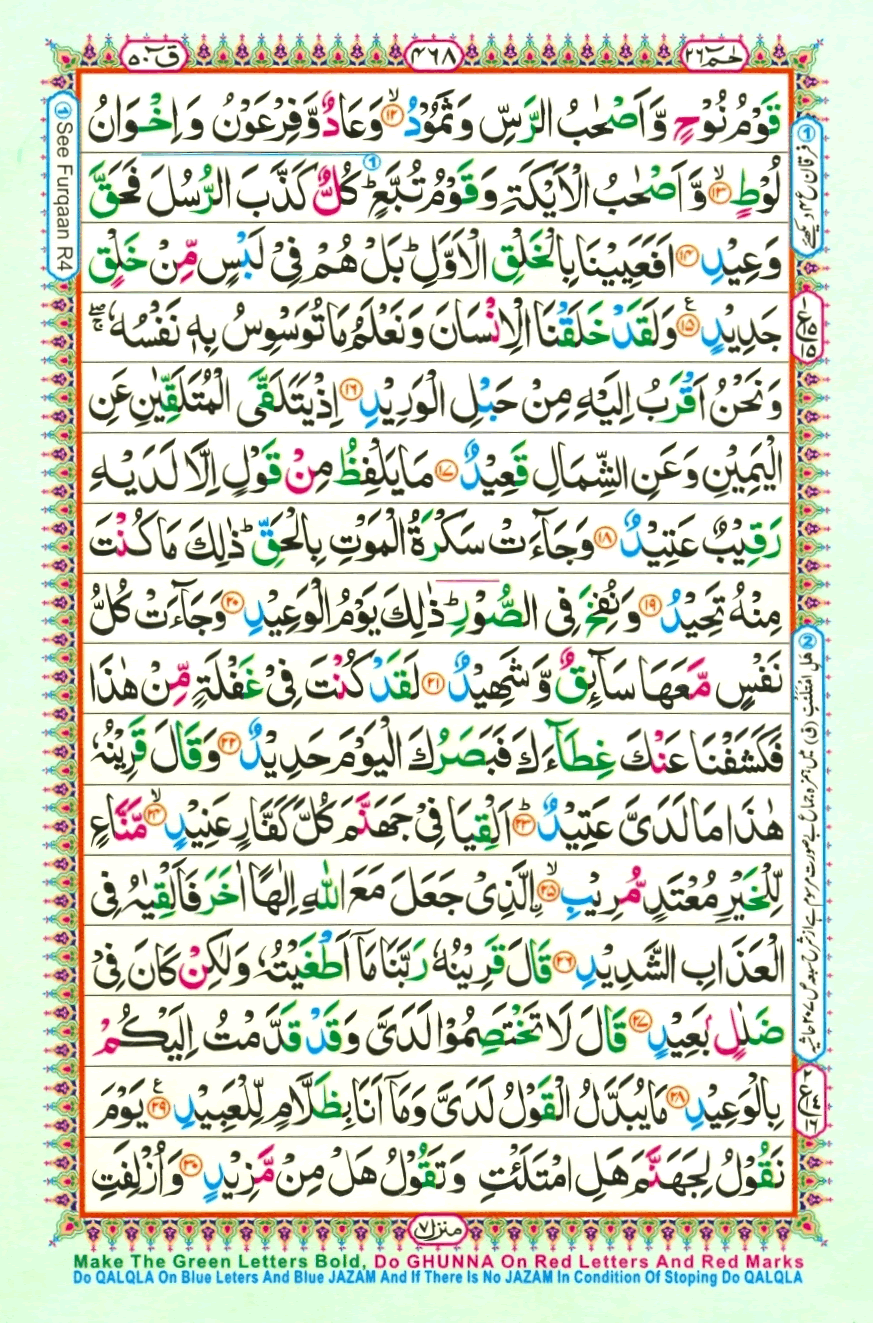 حٰمٓ ۲۶
۴۶۸
قٓ ۵۰
قَوْمُ نُوْحٍ وَّاَصْحٰبُ الرَّسِّ وَثَمُوْدُ ۙ﴿۱۲﴾ وَعَادٌ وَّفِرْعَوْنُ وَاِخْوَانُ
لُوْطٍ ۙ﴿۱۳﴾ وَّاَصْحٰبُ الْاَيْكَةِ وَقَوْمُ تُبَّعٍ ؕ كُلٌّ كَذَّبَ الرُّسُلَ فَحَقَّ
وَعِيْدِ ﴿۱۴﴾ اَفَعَيِيْنَا بِالْخَلْقِ الْاَوَّلِ ؕ بَلْ هُمْ فِيْ لَبْسٍ مِّنْ خَلْقٍ
جَدِيْدٍ ﴿۱۵﴾ وَلَقَدْ خَلَقْنَا الْاِنْسَانَ وَنَعْلَمُ مَا تُوَسْوِسُ بِهٖ نَفْسُهٗ ۖۚ
وَنَحْنُ اَقْرَبُ اِلَيْهِ مِنْ حَبْلِ الْوَرِيْدِ ﴿۱۶﴾ اِذْ يَتَلَقَّى الْمُتَلَقِّيٰنِ عَنِ
الْيَمِيْنِ وَعَنِ الشِّمَالِ قَعِيْدٌ ﴿۱۷﴾ مَا يَلْفِظُ مِنْ قَوْلٍ اِلَّا لَدَيْهِ
رَقِيْبٌ عَتِيْدٌ ﴿۱۸﴾ وَجَآءَتْ سَكْرَةُ الْمَوْتِ بِالْحَقِّ ؕ ذٰلِكَ مَا كُنْتَ
مِنْهُ تَحِيْدُ ﴿۱۹﴾ وَنُفِخَ فِي الصُّوْرِ ؕ ذٰلِكَ يَوْمُ الْوَعِيْدِ ﴿۲۰﴾ وَجَآءَتْ كُلُّ
نَفْسٍ مَّعَهَا سَآئِقٌ وَّشَهِيْدٌ ﴿۲۱﴾ لَقَدْ كُنْتَ فِيْ غَفْلَةٍ مِّنْ هٰذَا
فَكَشَفْنَا عَنْكَ غِطَآءَكَ فَبَصَرُكَ الْيَوْمَ حَدِيْدٌ ﴿۲۲﴾ وَقَالَ قَرِيْنُهٗ
هٰذَا مَا لَدَيَّ عَتِيْدٌ ؕ﴿۲۳﴾ اَلْقِيَا فِيْ جَهَنَّمَ كُلَّ كَفَّارٍ عَنِيْدٍ ۙ﴿۲۴﴾ مَّنَّاعٍ
لِّلْخَيْرِ مُعْتَدٍ مُّرِيْبِ ۙ﴿۲۵﴾ اِۨلَّذِيْ جَعَلَ مَعَ اللّٰهِ اِلٰهًا اٰخَرَ فَاَلْقِيٰهُ فِي
الْعَذَابِ الشَّدِيْدِ ﴿۲۶﴾ قَالَ قَرِيْنُهٗ رَبَّنَا مَآ اَطْغَيْتُهٗ وَلٰكِنْ كَانَ فِيْ
ضَلٰلٍۭ بَعِيْدٍ ﴿۲۷﴾ قَالَ لَا تَخْتَصِمُوْا لَدَيَّ وَقَدْ قَدَّمْتُ اِلَيْكُمْ
بِالْوَعِيْدِ ﴿۲۸﴾ مَا يُبَدَّلُ الْقَوْلُ لَدَيَّ وَمَآ اَنَا بِظَلَّامٍ لِّلْعَبِيْدِ ﴿۲۹﴾ يَوْمَ
نَقُوْلُ لِجَهَنَّمَ هَلِ امْتَلَئْتِ وَتَقُوْلُ هَلْ مِنْ مَّزِيْدٍ ﴿۳۰﴾ وَاُزْلِفَتِ
① فرقان ع ۴ دیکھئے
① See Furqaan R4
ع ۱ ۱۵ ۱۵
② هَلِ امْتَلَئْتِ (ق) میں ہمزہ
ع ۲ ۱۴ ۱۶
منزل ۷
Make The Green Letters Bold, Do GHUNNA On Red Letters And Red Marks
Do QALQLA On Blue Leters And Blue JAZAM And If There Is No JAZAM In Condition Of Stoping Do QALQLA